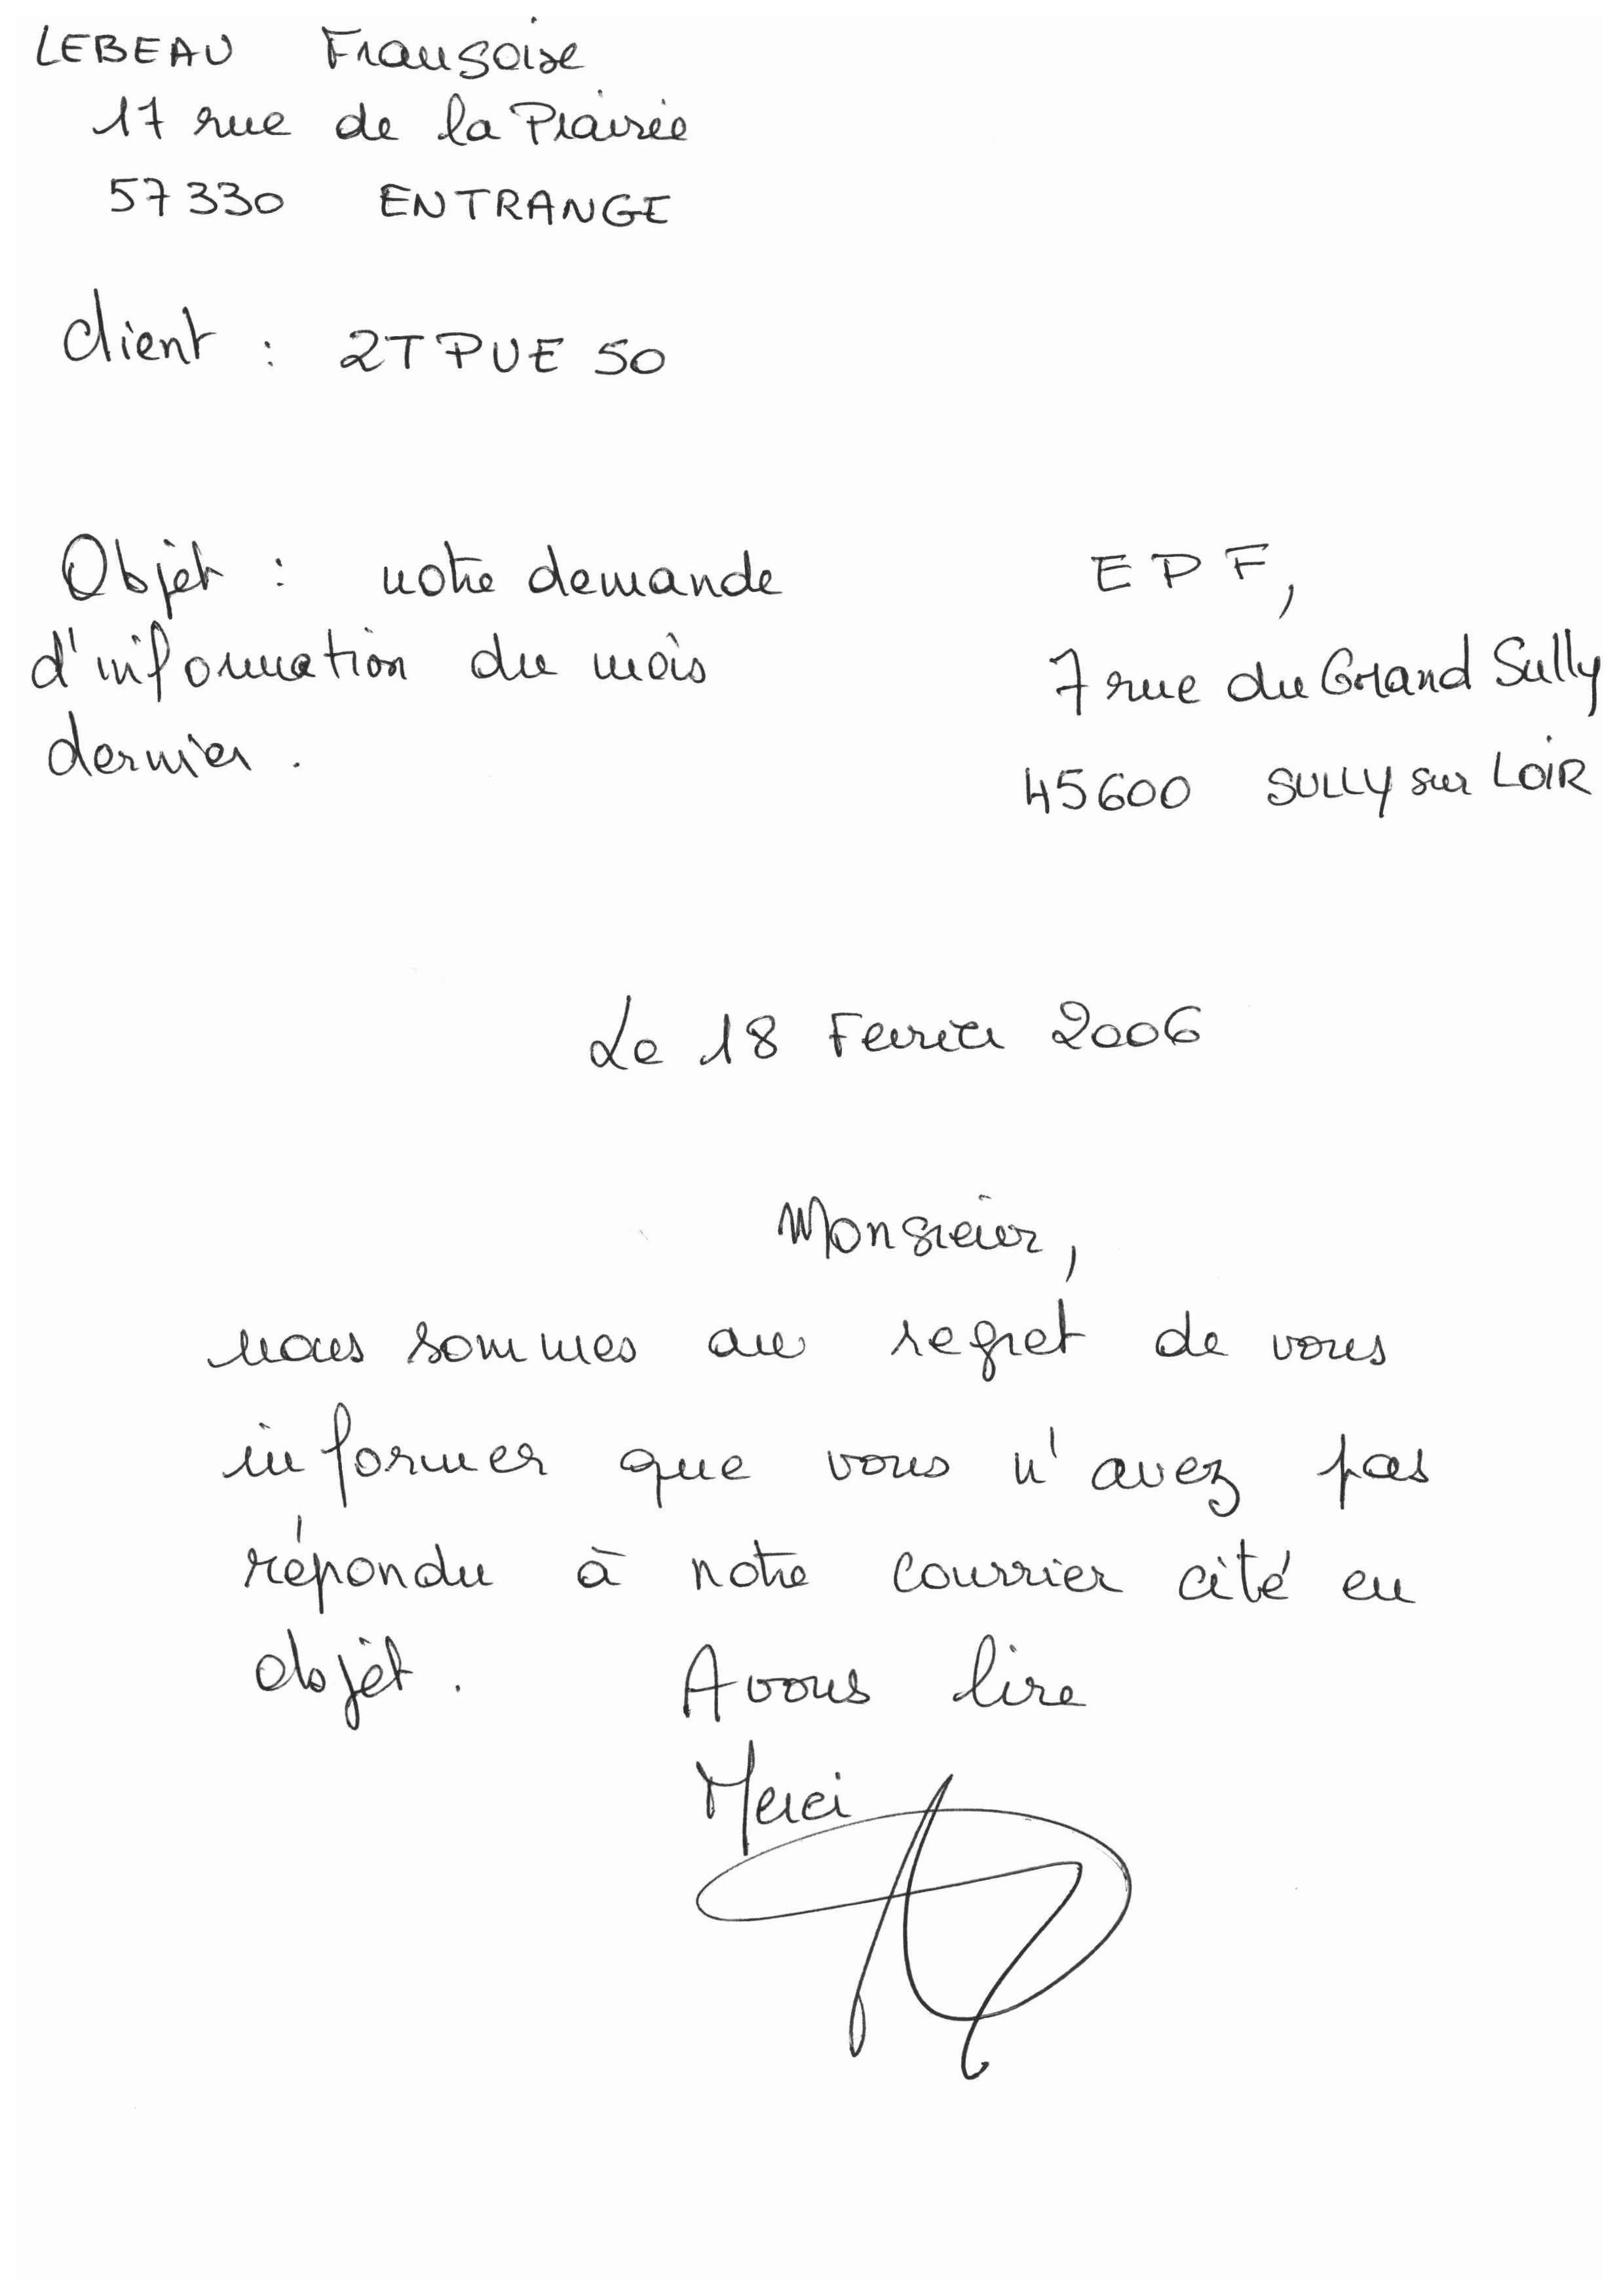 LEBEAU Françoise
17 rue de la Prairie
57330 ENTRANGE
Client : 2TPUE50
Objet : notre demande
d'information du mois
dernier.
EPF,
7 rue du Grand Sully
45600 SULLY sur LOIR
Le 18 Fevrier 2006
Monsieur,
nous sommes au regret de vous
informer que vous n'avez pas
répondu à notre courrier cité en
objet. A vous lire
Merci